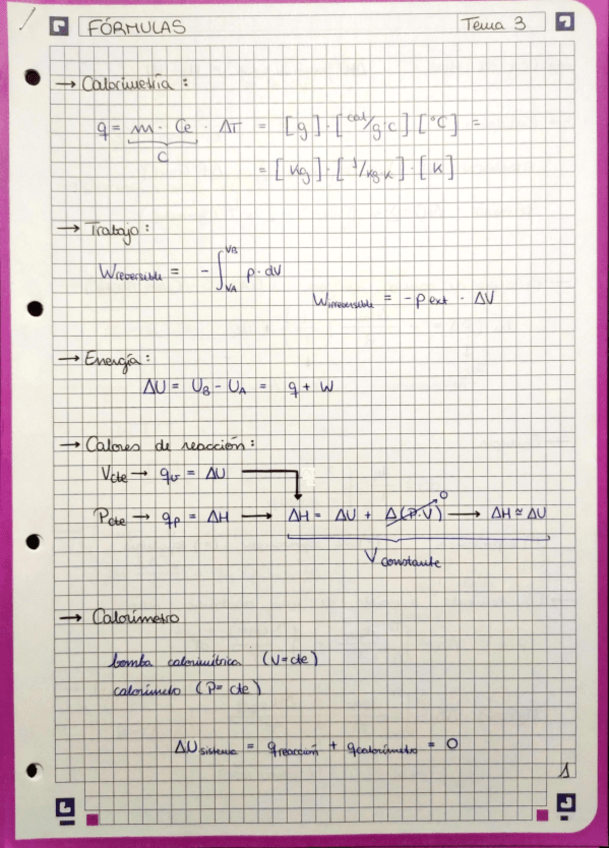 FÓRMULAS
Tema 3
→ Calorimetría :
q = m · Ce · ΔT = [g] · [cal/g·c] [°C] =
C
= [Kg] · [J/Kg·K] · [K]
→ Trabajo :
Wreversible = - ∫ VB VA p · dV
Wirreversible = -p ext · ΔV
→ Energía :
ΔU = UB - UA = q + W
→ Calores de reacción :
Vcte → qv = ΔU
Pcte → qp = ΔH → ΔH = ΔU + Δ(P·V) 0 → ΔH ≅ ΔU
V constante
→ Calorímetro
bomba calorimétrica (V=cte)
calorímetro (P= cte)
ΔU sistema = qreacción + qcalorímetro = 0
1